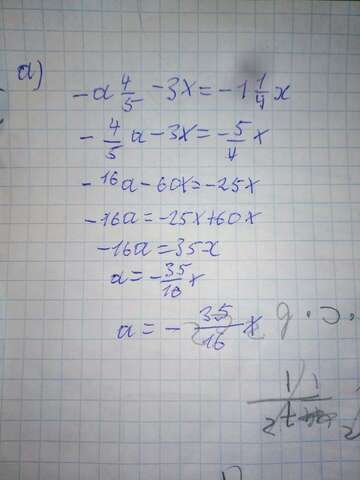 a)
-a 4/5 - 3x = -1 1/4 x
- 4/5 a - 3x = - 5/4 x
-16a - 60x = -25x
-16a = -25x + 60x
-16a = 35x
a = - 35/16 x
a = - 35/16 x